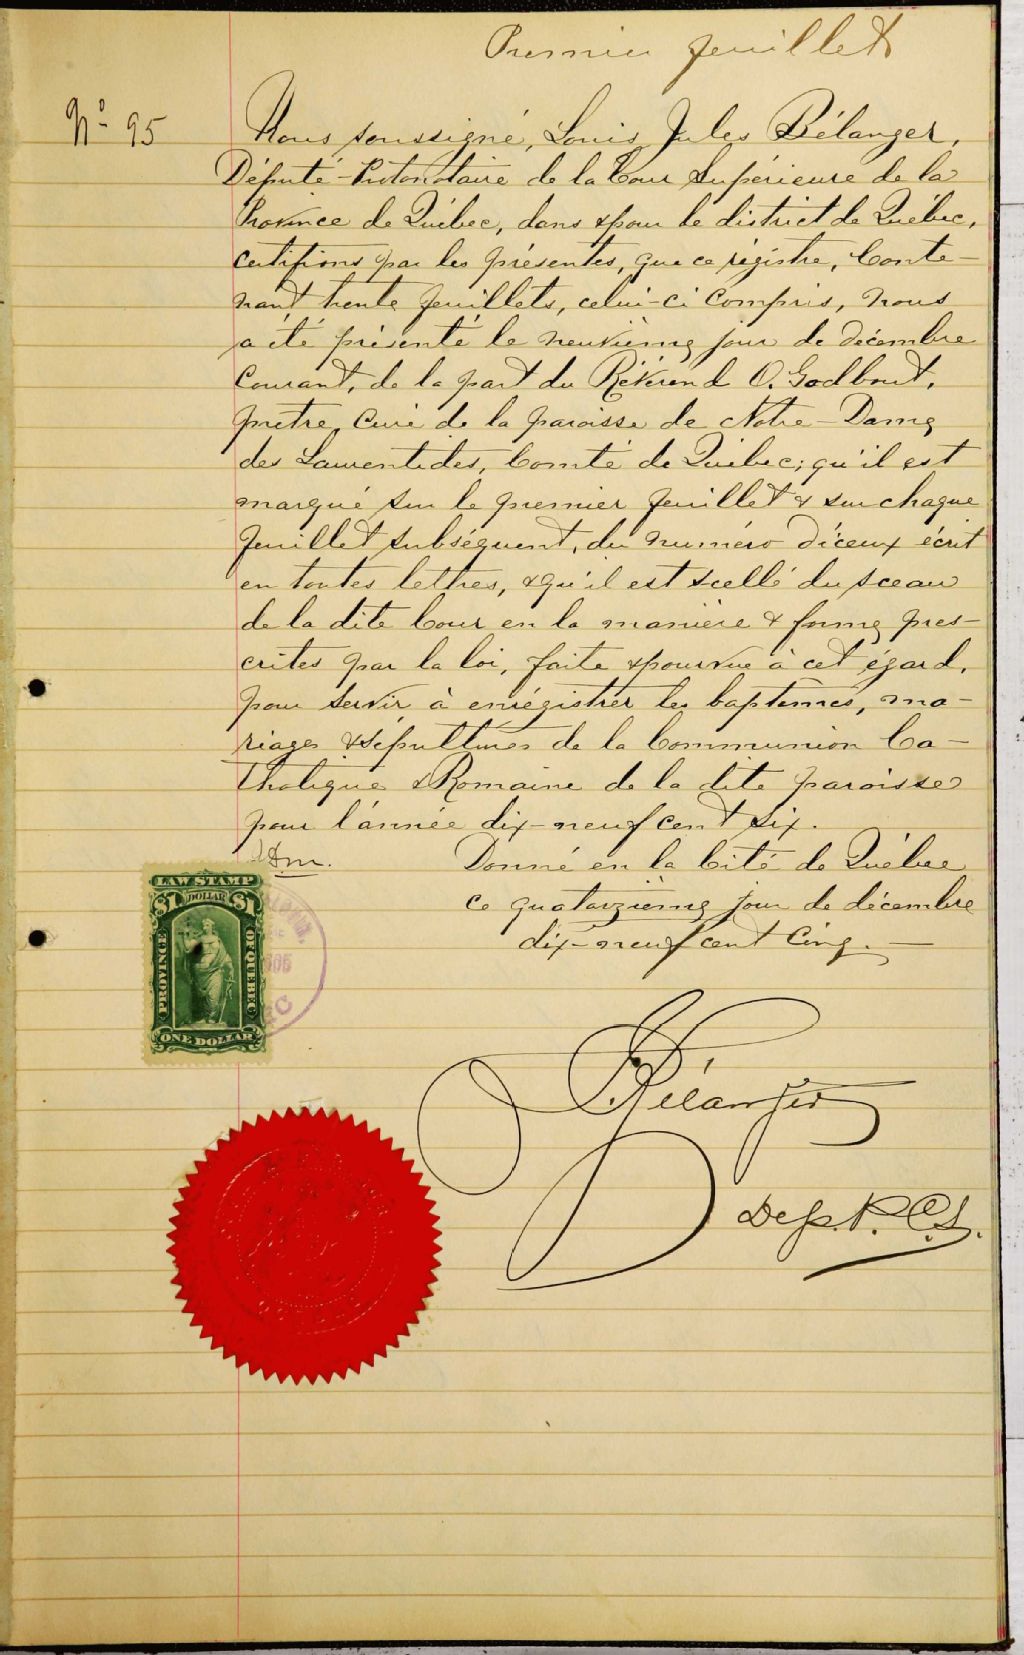 Premier feuillet
No 95
Nous soussigné, Louis Jules Bélanger,
Député-Protonotaire de la Cour Supérieure de la
Province de Québec, dans & pour le district de Québec,
certifions par les présentes, que ce régistre, Conte-
nant trente feuillets, celui-ci Compris, nous
a été présenté le neuvième jour de décembre
Courant, de la part du Révérend O. Godbout,
prêtre, Curé de la paroisse de Notre-Dame
des Laurentides, Comté de Québec; qu'il est
marqué sur le premier feuillet & sur chaque
feuillet subséquent, du numéro d'iceux écrit
en toutes lettres, & qu'il est scellé du sceau
de la dite Cour en la manière & forme pres-
crites par la loi, faite & pourvue à cet égard,
pour servir à enrégistrer les baptêmes, ma-
riages & sépultures de la Communion Ca-
tholique & Romaine de la dite paroisse
pour l'année dix-neuf cent six.
Donné en la Cité de Québec
ce quatorzième jour de décembre
dix-neuf cent Cinq. —
LAW STAMP
$1 DOLLAR $1
PROVINCE OF QUEBEC
ONE DOLLAR
Bélanger
Dep. P. C. S.